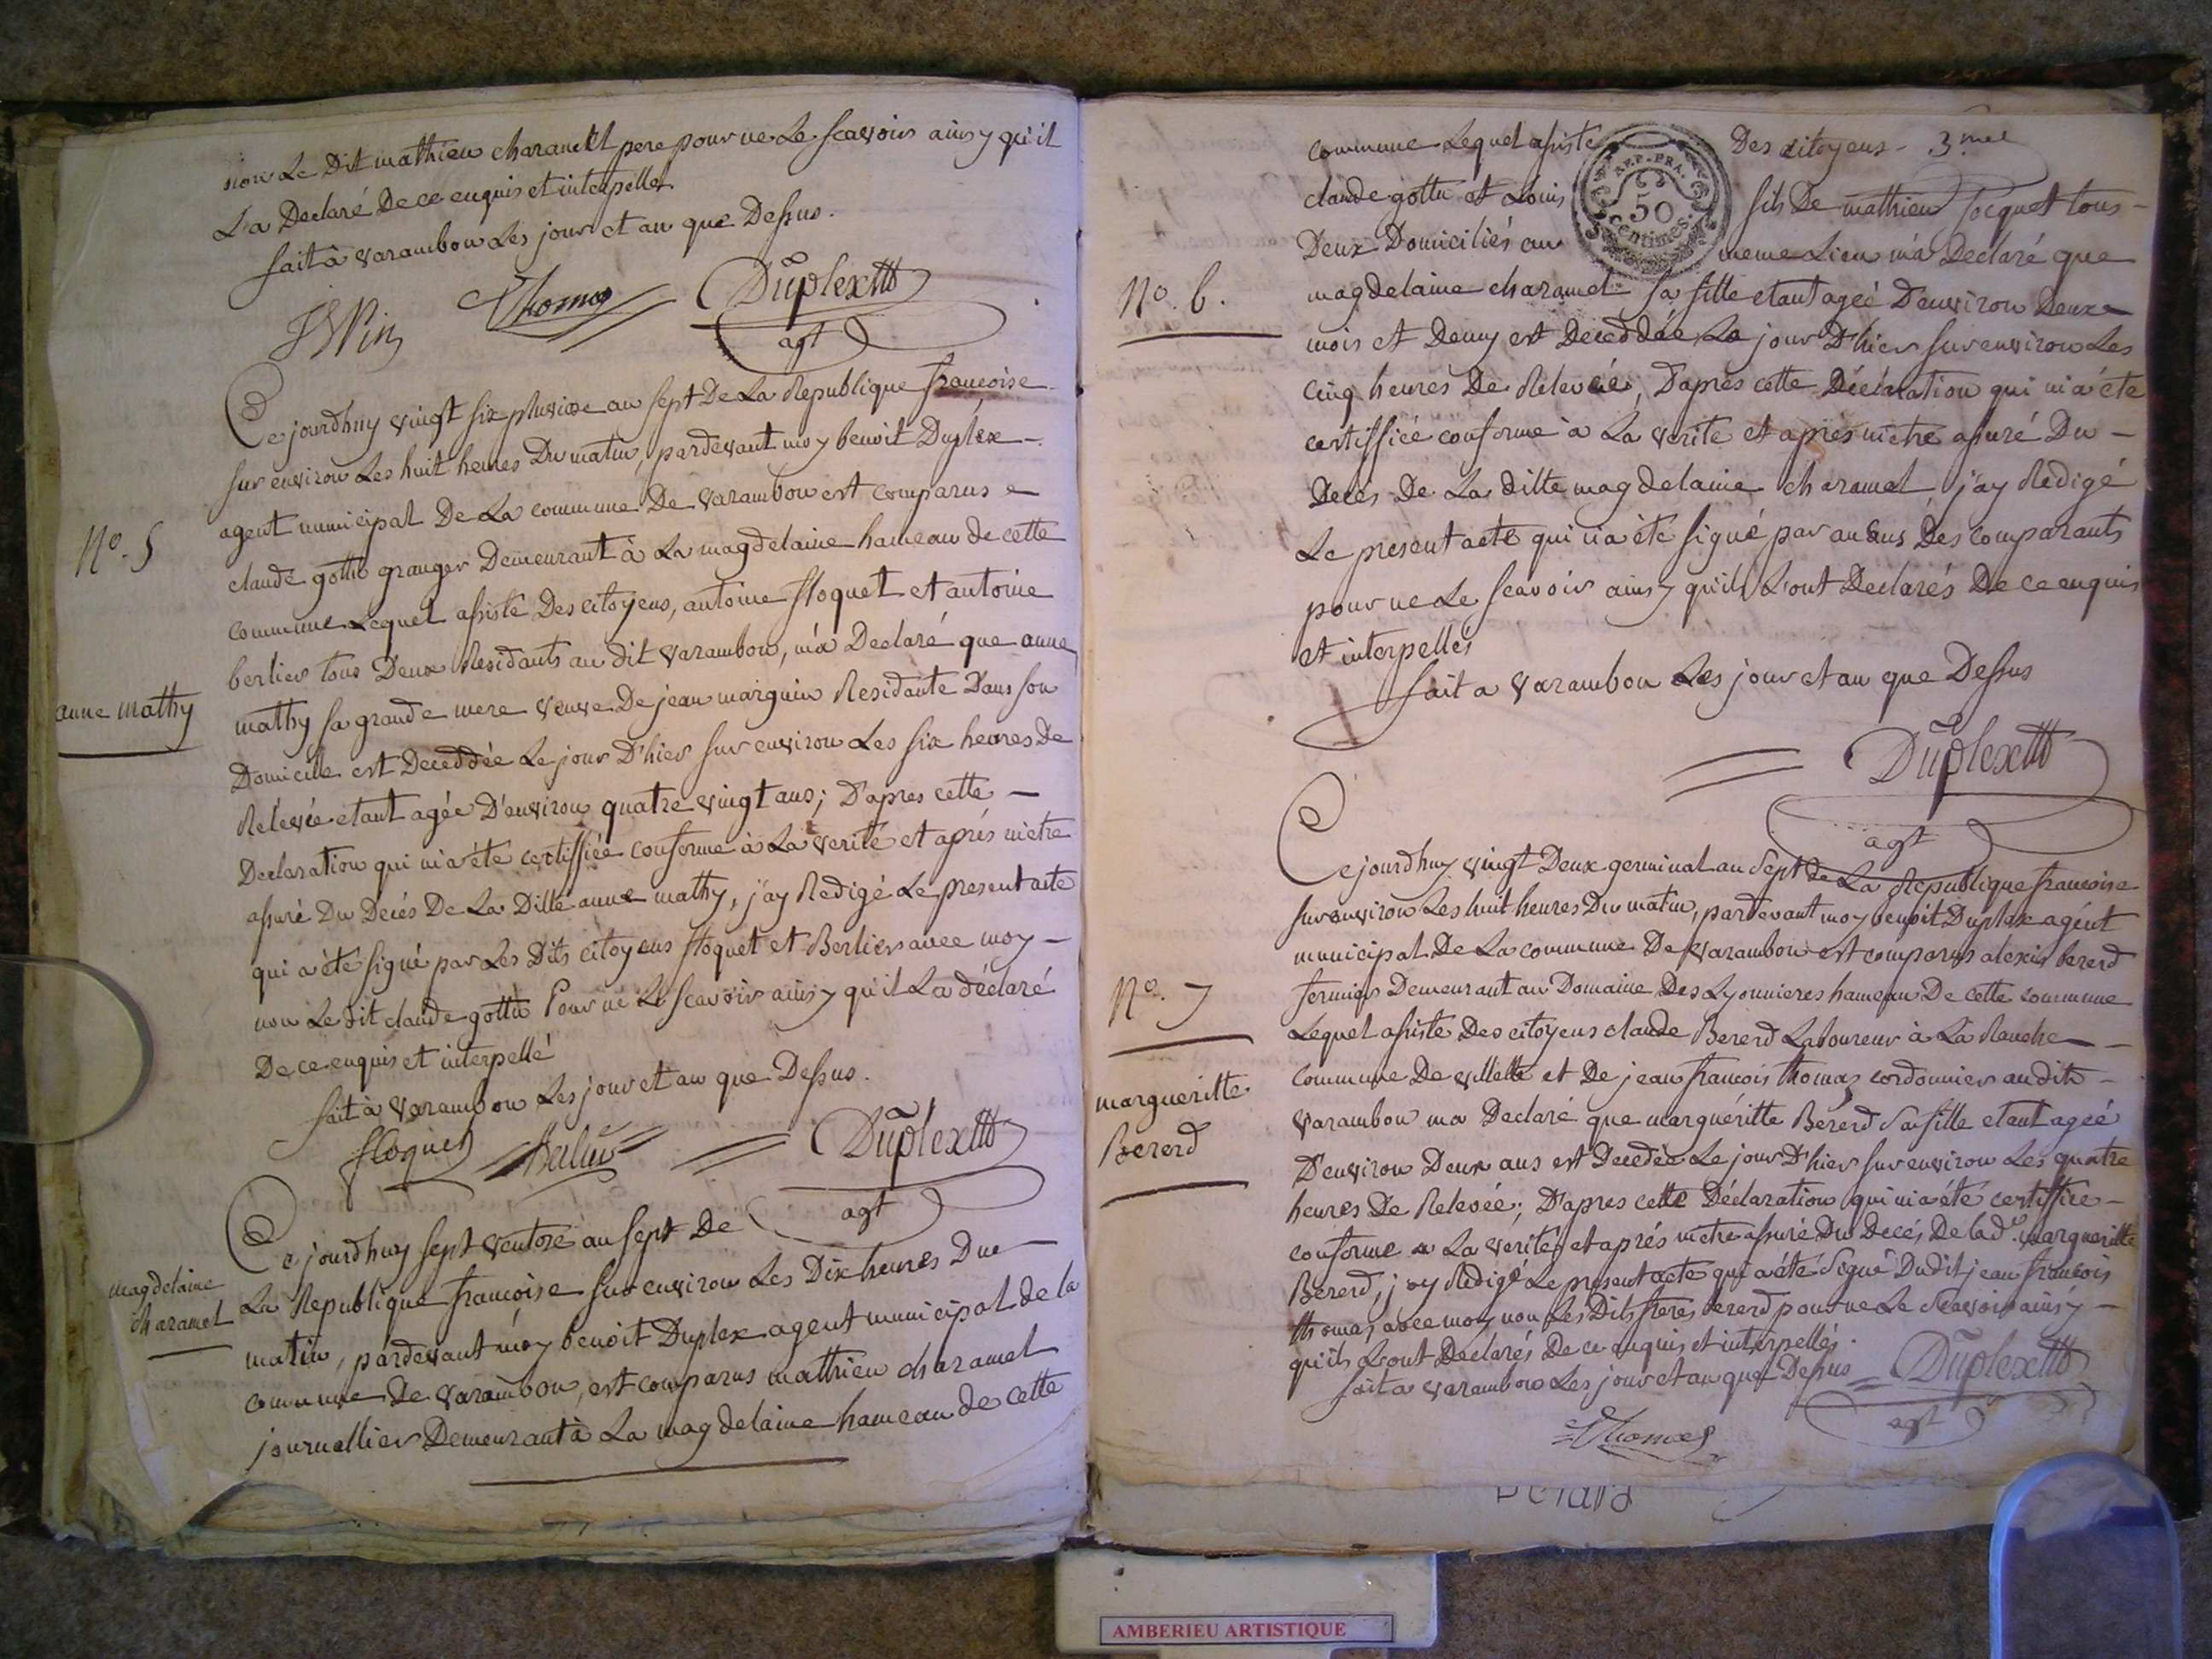 non Le Dit mathieu charamel pere pour ne Le scavoir ainsy qu'il
L'a Declaré De ce enquis et interpellé
fait à varambon Les jour et an que Dessus.
Thomas Duplex
agt
Ce jourdhuy vingt six pluviose an sept De La Republique francoise
sur environ Les huit heures Du matin, pardevant moy benoit Duplex -
agent municipal De La commune De varambon est comparus
No. 5
claude gottu granger Demeurant à La magdelaine hameau de cette
commune Lequel assisté Des citoyens, antoine floquet et antoine
berlier tous Deux Residants au dit varambon, m'a Declaré que anne
anne mathy
mathy sa grande mere veuve De jean marguin Residante Dans son
Domicile est Deceddée Le jour D'hier sur environ Les six heures De
Relevée etant agée D'environ quatre vingt ans; D'apres cette -
Declaration qui m'a été certiffiée conforme à La verité et aprés m'etre
assuré Du Decés De La Ditte anne mathy, j'ay Redigé Le present acte
qui a été signé par Les Dits citoyens floquet et Berlier avec moy -
non Le dit claude gottu Pour ne Le scavoir ainsy qu'il La déclaré
De ce enquis et interpellé
fait à varambon Les jour et an que Dessus.
floquet Duplex
agt
Ce jourdhuy sept ventose an sept De
magdelaine
charamel
La Republique francoise sur environ Les Dix heures Du
matin, pardevant moy benoit Duplex agent municipal de la
commune De varambon, est comparus mathieu charamel
journallier Demeurant à La magdelaine hameau de cette
commune Lequel assisté Des citoyens - 3.me
REP. FRA.
50
centimes.
claude gottu et Louis fils De mathieu Jocquet tous -
Deux Domiciliés au meme Lieu m'a Declaré que
No. 6.
magdelaine charamel sa fille etant ageé D'environ Deux
mois et Demy est Deceddée Le jour D'hier sur environ Les
cinq heures De Relevée, D'aprés cette Déclaration qui m'a été
certiffiée conforme à La verité et aprés m'etre assuré Du -
Decés De La ditte magdelaine charamel j'ay Redigé
Le present acte qui n'a été signé par aucuns Des comparants
pour ne Le scavoir ainsy qu'ils L'ont Declarés De ce enquis
et interpellés
fait a varambon Les jour et an que Dessus
Duplex
agt
Ce jourdhuy vingt Deux germinal an sept de La Republique francoise
sur environ Les huit heures Du matin, pardevant moy benoit Duplex agént
municipal De La commune De varambon est comparus alexis bererd
No. 7
fermier Demeurant au Domaine Des Lyonnieres hameau De cette commune
Lequel assisté Des citoyens claude Bererd Laboureur à La Ranche -
commune De villette et De jean francois thomas cordonnier au dit -
margueritte
Bererd
varambon ma Declaré que marguéritte Bererd sa fille etant ageé
D'environ Deux ans est Decedée Le jour D'hier sur environ Les quatre
heures De Relevée; D'apres cette Déclaration qui m'a été certiffiée -
conforme a La verité, et aprés m'etre assuré Du Decés De lad.e margueritte
Bererd, j'ay Redigé Le present acte qui a été signé Dudit jean francois
thomas avec moy non Les Dits freres bererd pour ne Le scavoir ainsy -
qu'ils L'ont Declarés De ce enquis et interpellés.
fait a varambon Les jour et an que Dessus Duplex
agt
Thomas
AMBERIEU ARTISTIQUE